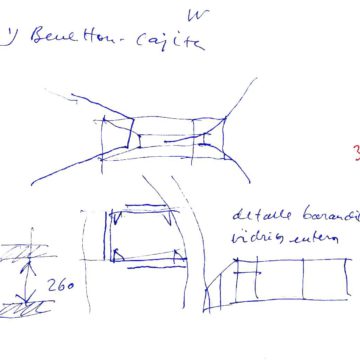 W
1) Benetton - Cajita
3
detalle barandi
vidrio entero
260